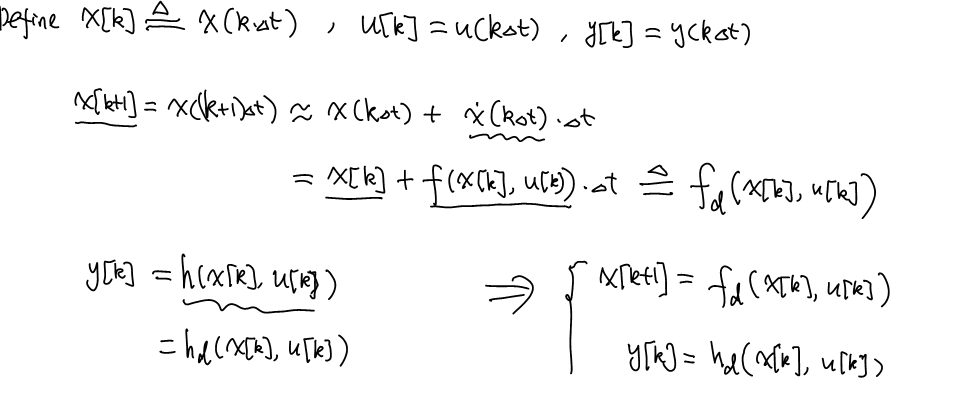 Define x[k] ≜ x(kΔt) , u[k] = u(kΔt) , y[k] = y(kΔt)
x[k+1] = x((k+1)Δt) ≈ x(kΔt) + ẋ(kΔt)·Δt
= x[k] + f(x[k], u[k])·Δt ≜ f_d(x[k], u[k])
y[k] = h(x[k], u[k]) ⇒ { x[k+1] = f_d(x[k], u[k])
= h_d(x[k], u[k]) y[k] = h_d(x[k], u[k])